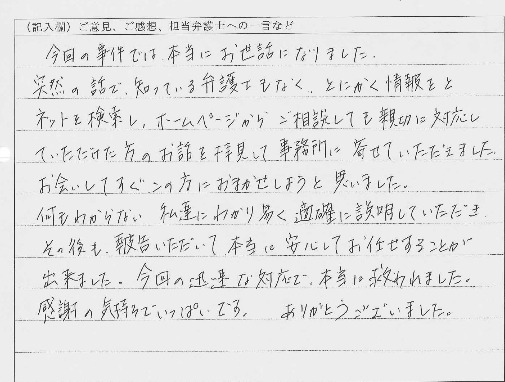 (記入欄)ご意見、ご感想、担当弁護士への一言など
今回の事件では本当にお世話になりました.
突然の話で、知っている弁護士もなく、とにかく情報をと
ネットを検索し、ホームページからご相談しても親切に対応し
ていただけた方のお話を拝見して事務所に寄せていただきました.
お会いしてすぐこの方におまかせしようと思いました。
何もわからない私達にわかり易く適確に説明していただき
その後も、報告いただいて本当に安心してお任せすることが
出来ました。今回の迅速な対応で、本当に救われました。
感謝の気持ちでいっぱいです。 ありがとうございました。